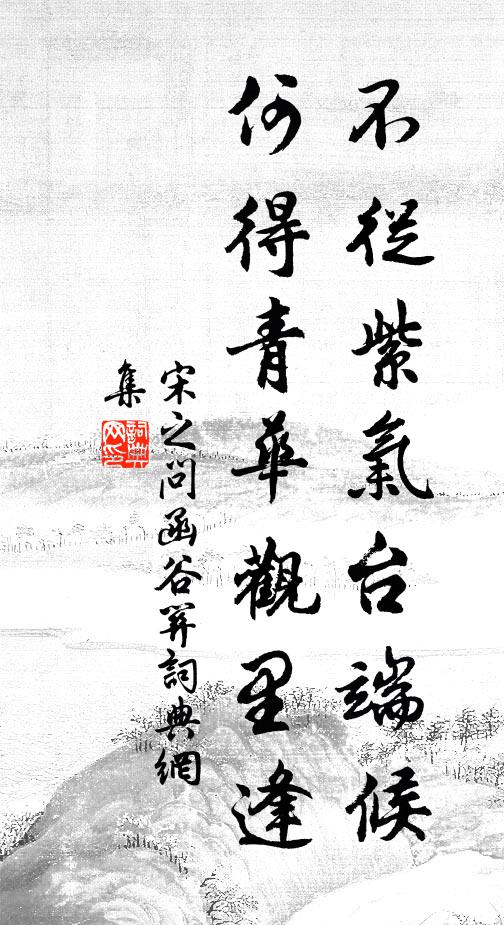 不從紫氣台端候
何得青華觀里逢
宋之問函谷關詞典網
集